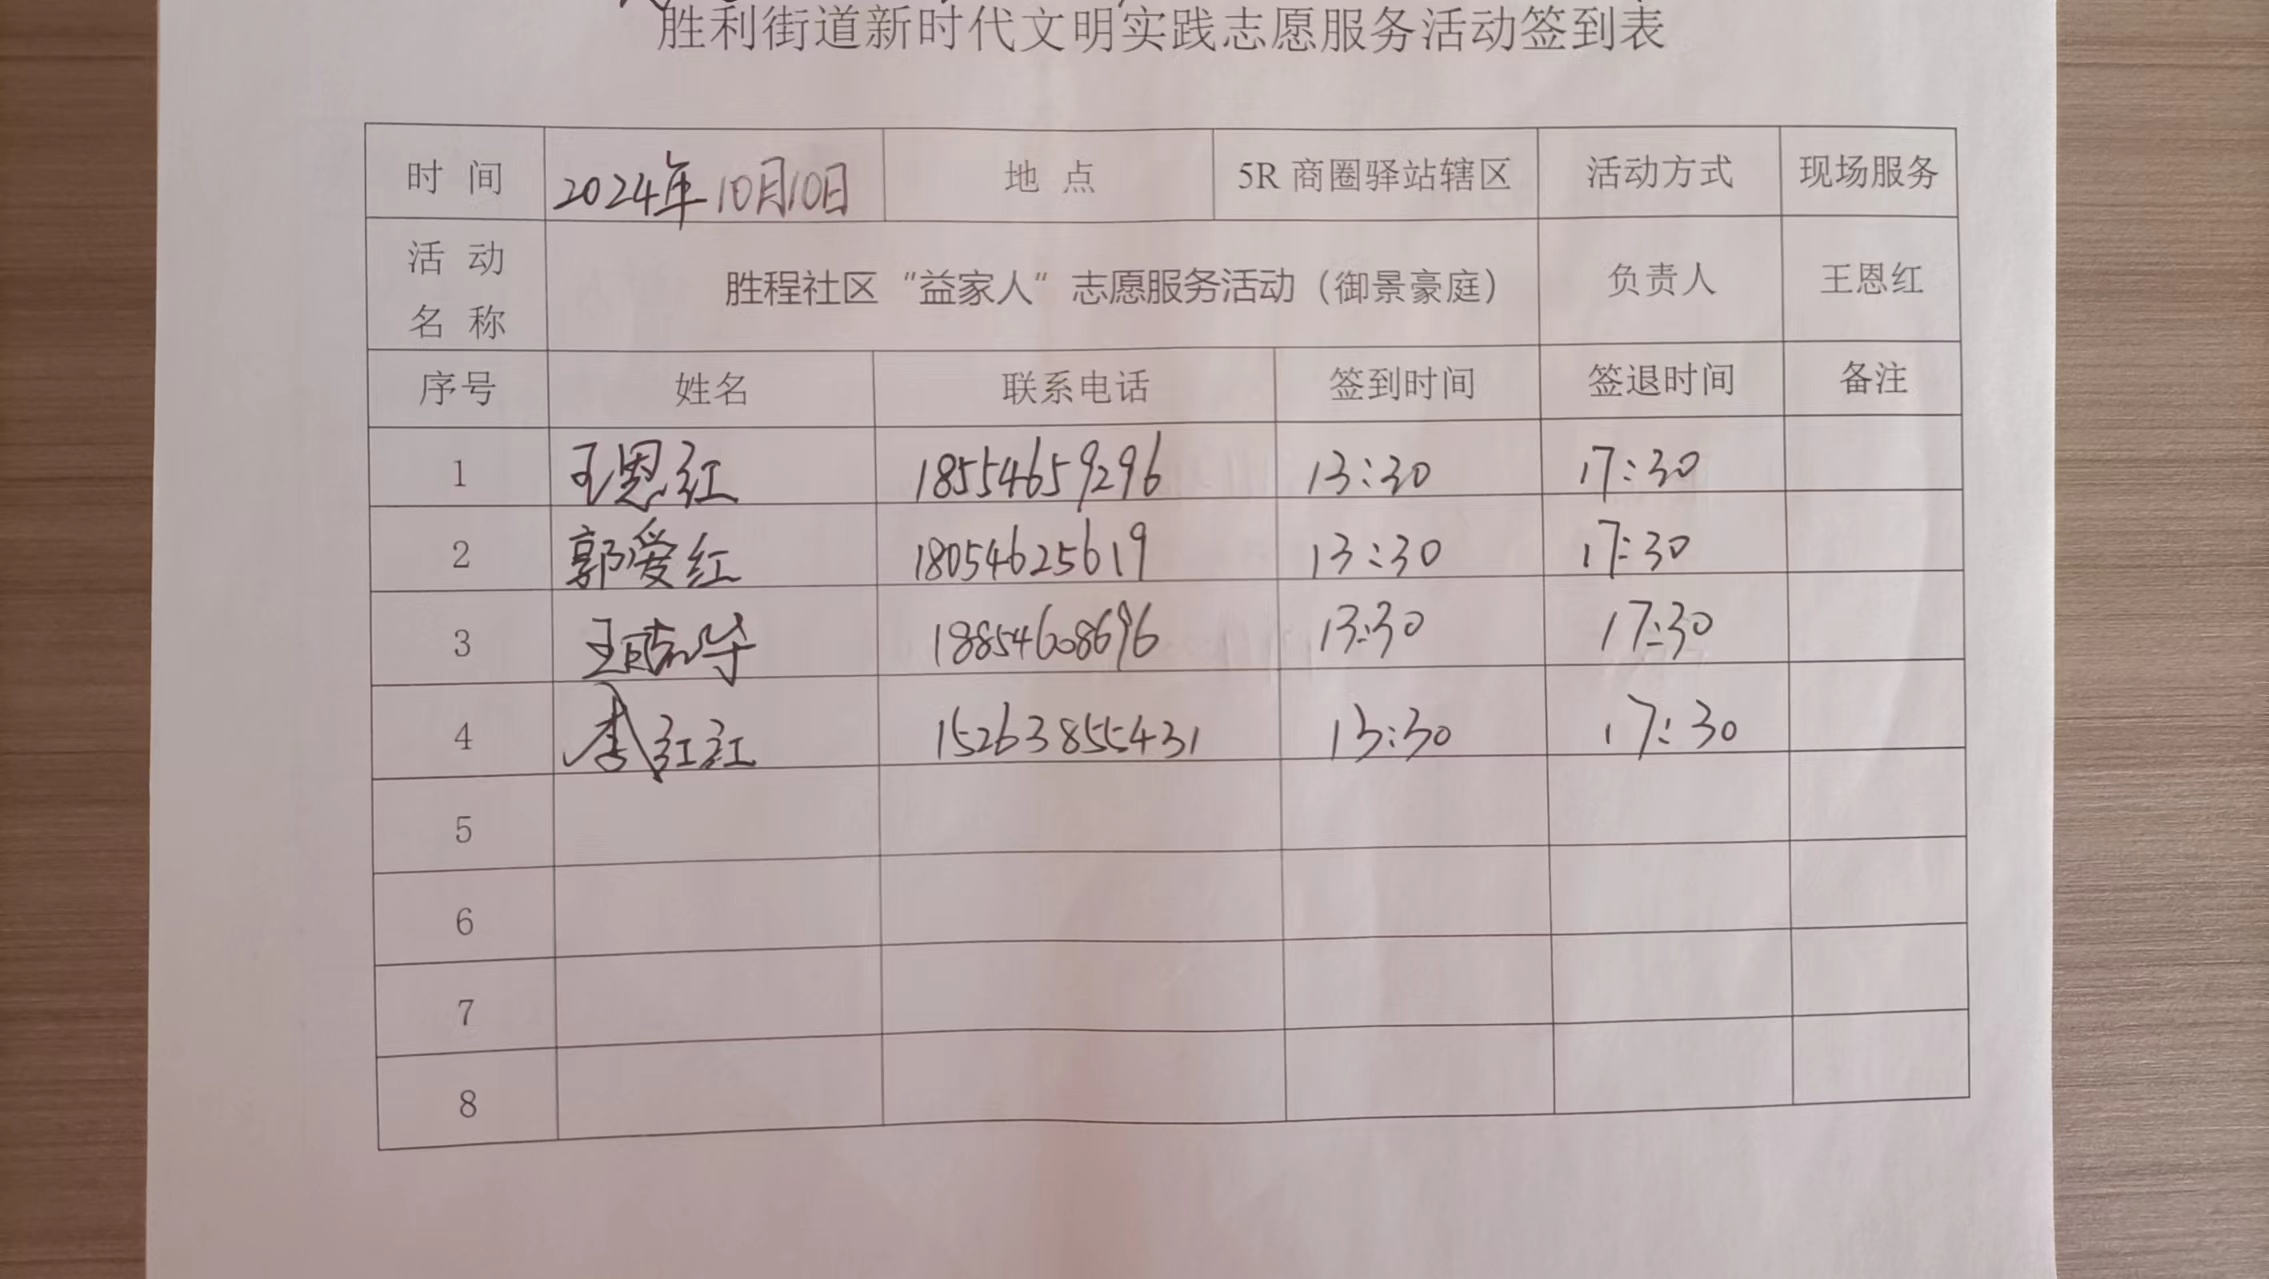 胜利街道新时代文明实践志愿服务活动签到表
时 间 2024年10月10日 地 点 5R 商圈驿站辖区 活动方式 现场服务
活 动 名 称 胜程社区“益家人”志愿服务活动（御景豪庭） 负责人 王恩红
序号 姓名 联系电话 签到时间 签退时间 备注
1 王恩红 18554659296 13:30 17:30
2 郭爱红 18054625619 13:30 17:30
3 王 18854608696 13:30 17:30
4 李红红 15263855431 13:30 17:30
5
6
7
8